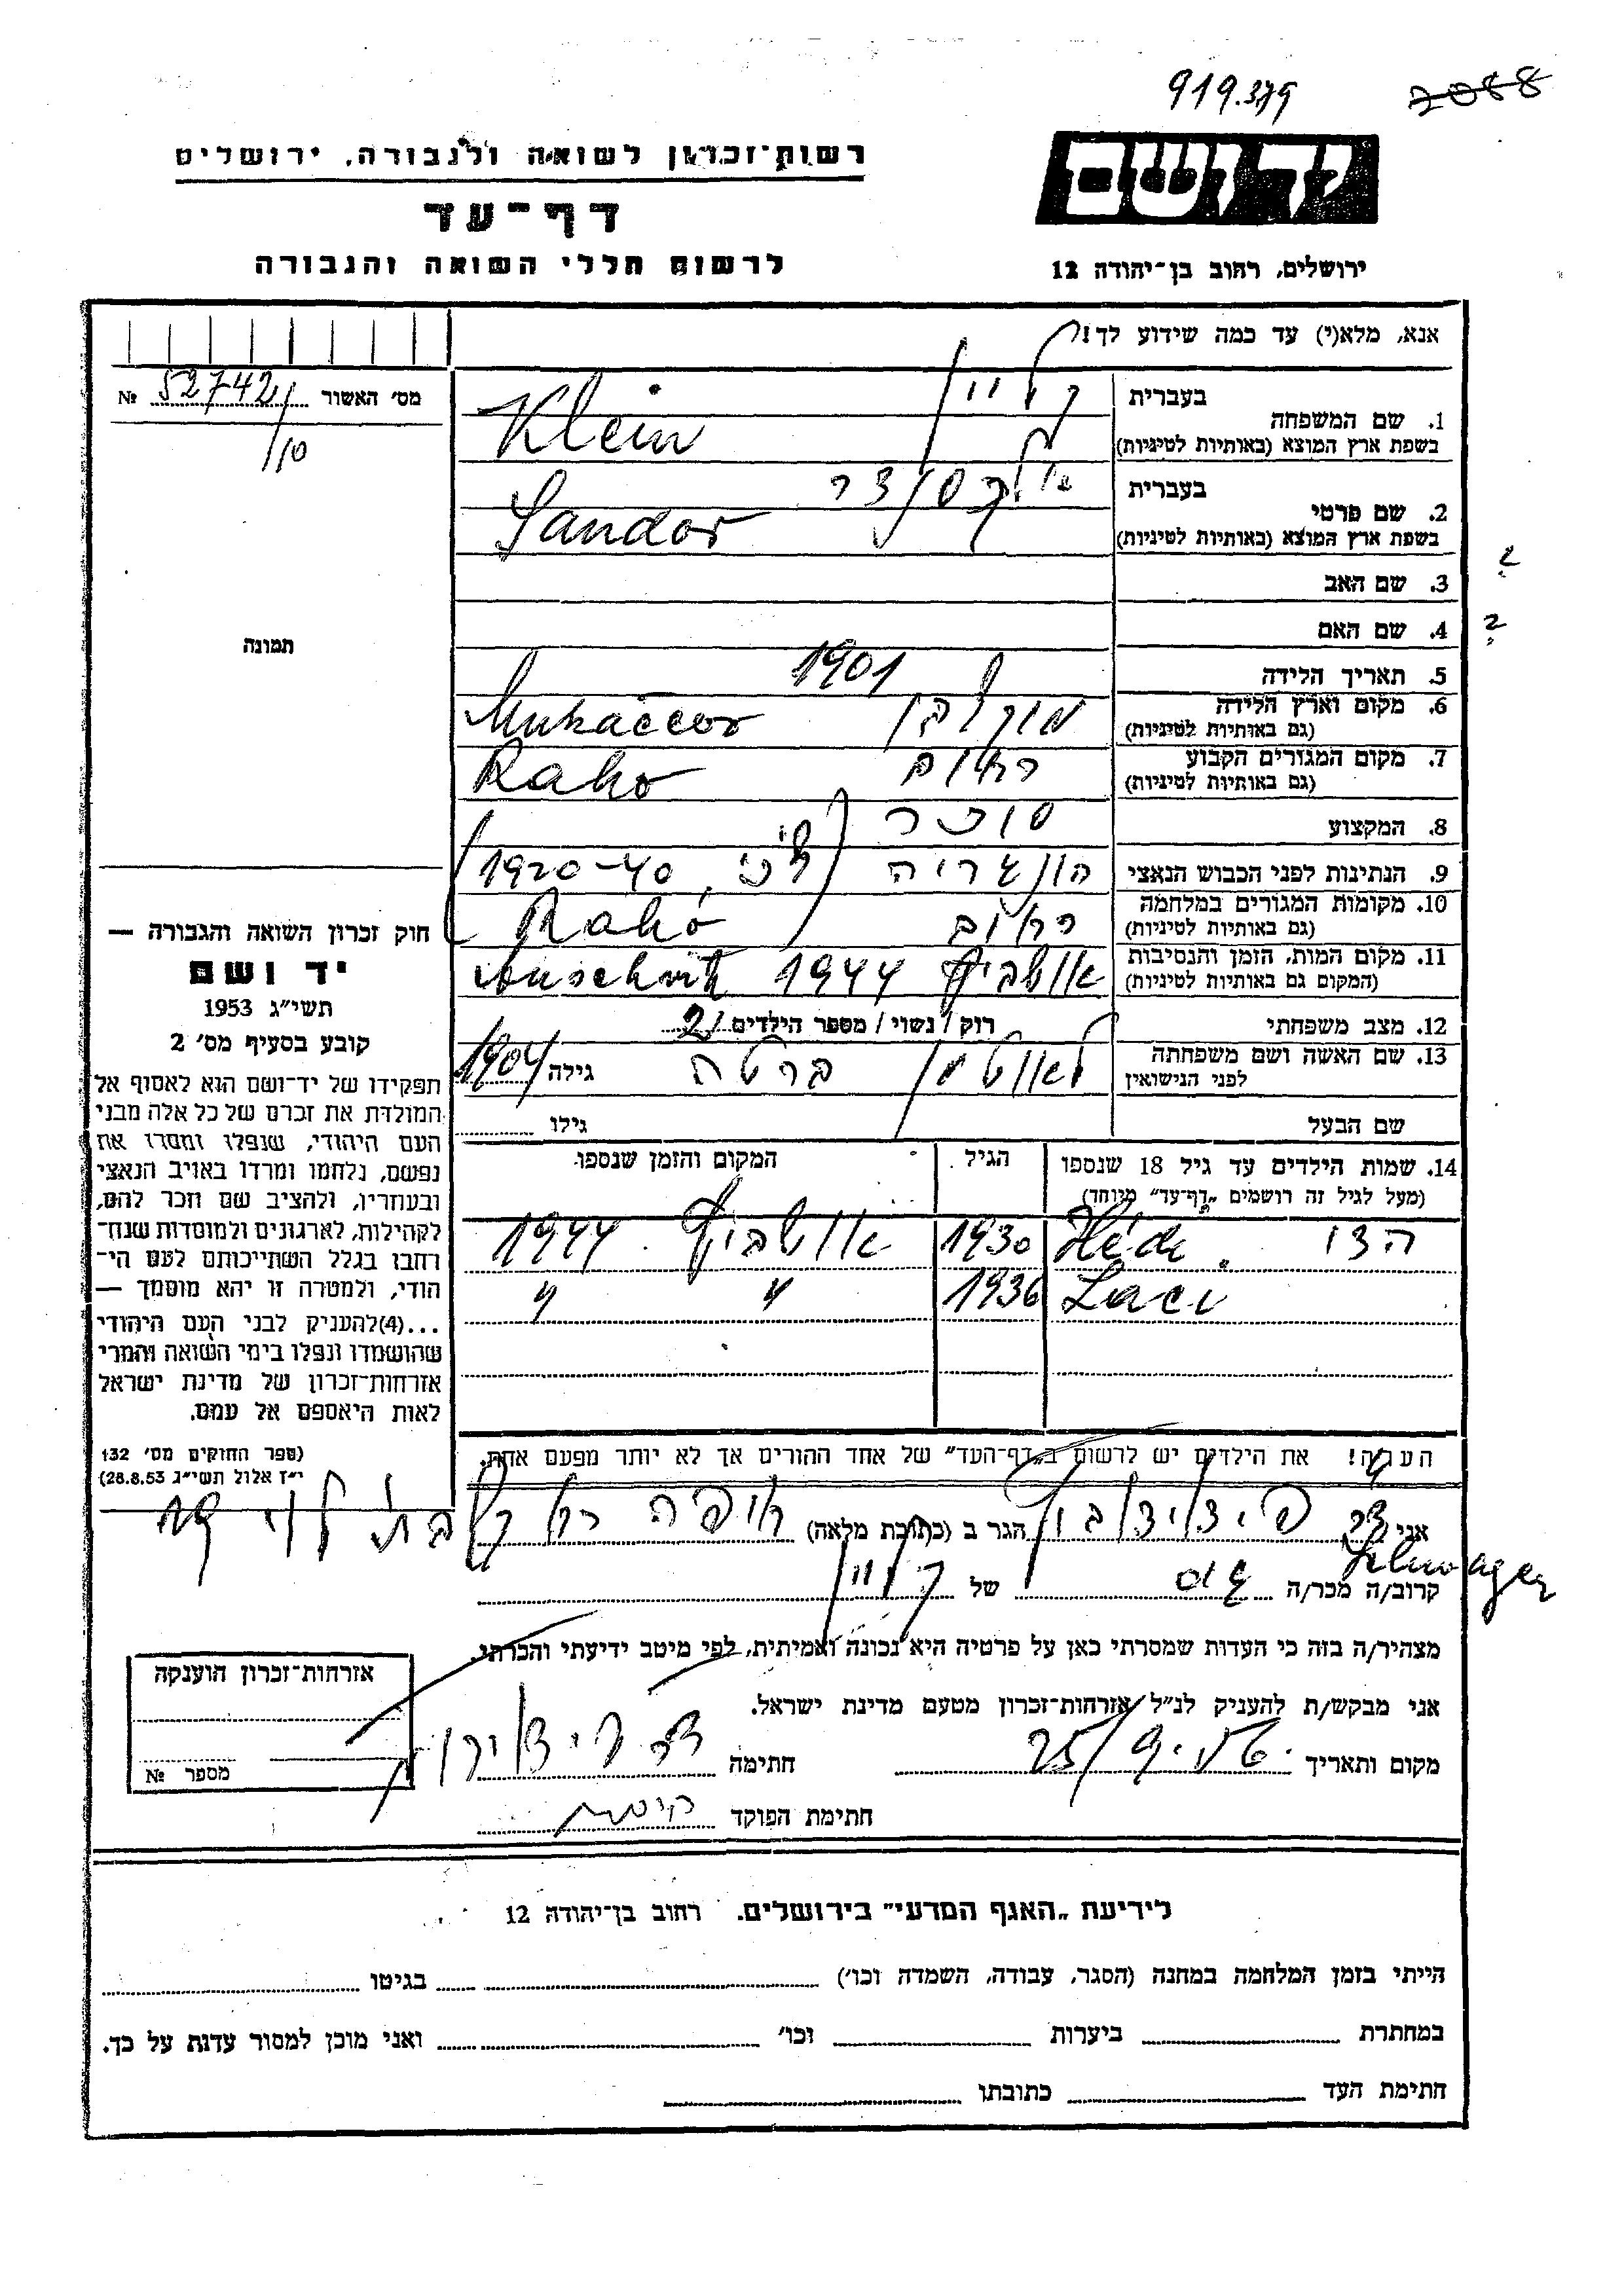 919.379
2088
יד ושם
ירושלים, רחוב בן־יהודה 12
רשות־זכרון לשואה ולגבורה, ירושלים
דף־עד
לרשום חללי השואה והגבורה
אנא, מלא(י) עד כמה שידוע לך!
מס' האשור 52742 №
/10
תמונה
בעברית קליין
1. שם המשפחה
בשפת ארץ המוצא (באותיות לטיניות) Klein
בעברית אלקסנדר
2. שם פרטי
בשפת ארץ המוצא (באותיות לטיניות) Sandor
3. שם האב ?
4. שם האם ?
5. תאריך הלידה 1901
6. מקום וארץ הלידה
(גם באותיות לטיניות) Mukačevo
7. מקום המגורים הקבוע
(גם באותיות לטיניות) Raho
8. המקצוע סוחר
9. הנתינות לפני הכבוש הנאצי הונגריה 1920-40
10. מקומות המגורים במלחמה
(גם באותיות לטיניות) Rahó
11. מקום המות, הזמן והנסיבות
(המקום גם באותיות לטיניות) 1944
12. מצב משפחתי רוק / נשוי / מספר הילדים 2
13. שם האשה ושם משפחתה
לפני הנישואין ברטה גילה 1904
שם הבעל גילו
14. שמות הילדים עד גיל 18 שנספו
(מעל לגיל זה רושמים „דף־עד" מיוחד)
הגיל
המקום והזמן שנספו
הדי Hédi 1930 אושביץ 1944
Laci 1936 " "
הערה! את הילדים יש לרשום ב„דף־העד" של אחד ההורים אך לא יותר מפעם אחת.
חוק זכרון השואה והגבורה —
יד ושם
תשי״ג 1953
קובע בסעיף מס' 2
תפקידו של יד־ושם הוא לאסוף אל
המולדת את זכרם של כל אלה מבני
העם היהודי, שנפלו ומסרו את
נפשם, נלחמו ומרדו באויב הנאצי
ובעוזריו, ולהציב שם וזכר להם,
לקהילות, לארגונים ולמוסדות שנח־
רחבו בגלל השתייכותם לעם הי־
הודי, ולמטרה זו יהא מוסמך —
...(4)להעניק לבני העם היהודי
שהושמדו ונפלו בימי השואה והמרי
אזרחות־זכרון של מדינת ישראל
לאות היאספם אל עמם.
(ספר החוקים מס' 132
י״ז אלול תשי״ג 28.8.53)
אני דר הגר ב (כתובת מלאה) חיפה
Schwager
קרוב/ה מכר/ה גיס של קליין
מצהיר/ה בזה כי העדות שמסרתי כאן על פרטיה היא נכונה ואמיתית, לפי מיטב ידיעתי והכרתי.
אני מבקש/ת להעניק לנ״ל אזרחות־זכרון מטעם מדינת ישראל.
מקום ותאריך 25/ חתימה
חתימת הפוקד
אזרחות־זכרון הוענקה
מספר №
לידיעת „האגף המדעי" בירושלים. רחוב בן־יהודה 12
הייתי בזמן המלחמה במחנה (הסגר, עבודה, השמדה וכו') בגיטו
במחתרת ביערות וכו' ואני מוכן למסור עדות על כך.
חתימת העד כתובתו